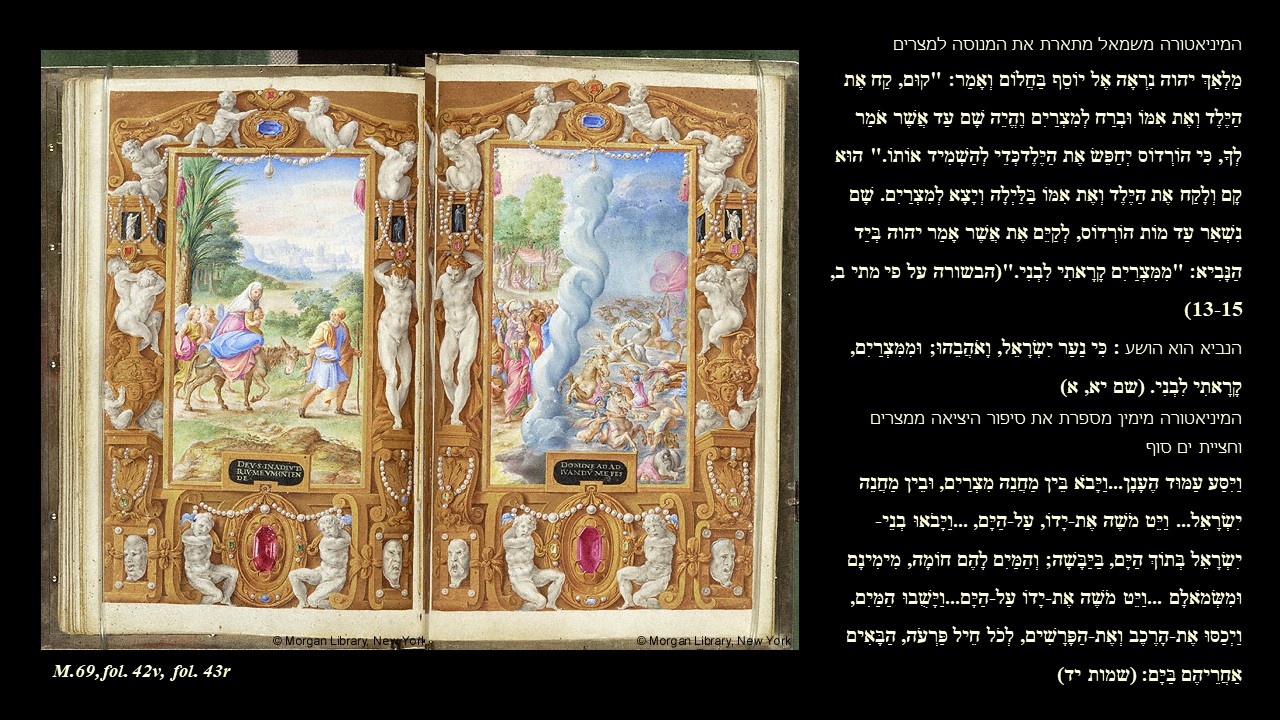 המיניאטורה משמאל מתארת את המנוסה למצרים
מַלְאַךְ יהוה נִרְאָה אֶל יוֹסֵף בַּחֲלוֹם וְאָמַר: "קוּם, קַח אֶת
הַיֶּלֶד וְאֶת אִמּוֹ וּבְרַח לְמִצְרַיִם וְהְיֵה שָׁם עַד אֲשֶׁר אֹמַר
לְךָ, כִּי הוֹרְדוֹס יְחַפֵּשׂ אֶת הַיֶּלֶדכְּדֵי לְהַשְׁמִיד אוֹתוֹ." הוּא
קָם וְלָקַח אֶת הַיֶּלֶד וְאֶת אִמּוֹ בַּלַּיְלָה וְיָצָא לְמִצְרַיִם. שָׁם
נִשְׁאַר עַד מוֹת הוֹרְדוֹס, לְקַיֵּם אֶת אֲשֶׁר אָמַר יהוה בְּיַד
הַנָּבִיא: "מִמִּצְרַיִם קָרָאתִי לִבְנִי."(הבשורה על פי מתי ב,
13-15)
הנביא הוא הושע : כִּי נַעַר יִשְׂרָאֵל, וָאֹהֲבֵהוּ; וּמִמִּצְרַיִם,
קָרָאתִי לִבְנִי. (שם יא, א)
המיניאטורה מימין מספרת את סיפור היציאה ממצרים
וחציית ים סוף
וַיִּסַּע עַמּוּד הֶעָנָן...וַיָּבֹא בֵּין מַחֲנֵה מִצְרַיִם, וּבֵין מַחֲנֵה
יִשְׂרָאֵל... וַיֵּט מֹשֶׁה אֶת-יָדוֹ, עַל-הַיָּם, ...וַיָּבֹאוּ בְנֵי-
יִשְׂרָאֵל בְּתוֹךְ הַיָּם, בַּיַּבָּשָׁה; וְהַמַּיִם לָהֶם חוֹמָה, מִימִינָם
וּמִשְּׂמֹאלָם ...וַיֵּט מֹשֶׁה אֶת-יָדוֹ עַל-הַיָּם...וַיָּשֻׁבוּ הַמַּיִם,
וַיְכַסּוּ אֶת-הָרֶכֶב וְאֶת-הַפָּרָשִׁים, לְכֹל חֵיל פַּרְעֹה, הַבָּאִים
אַחֲרֵיהֶם בַּיָּם: (שמות יד)
DEVS·INADIVTO
DOMINE AD AD
IVANDV ME FES
© Morgan Library, New York
© Morgan Library, New York
M.69,fol. 42v, fol. 43r